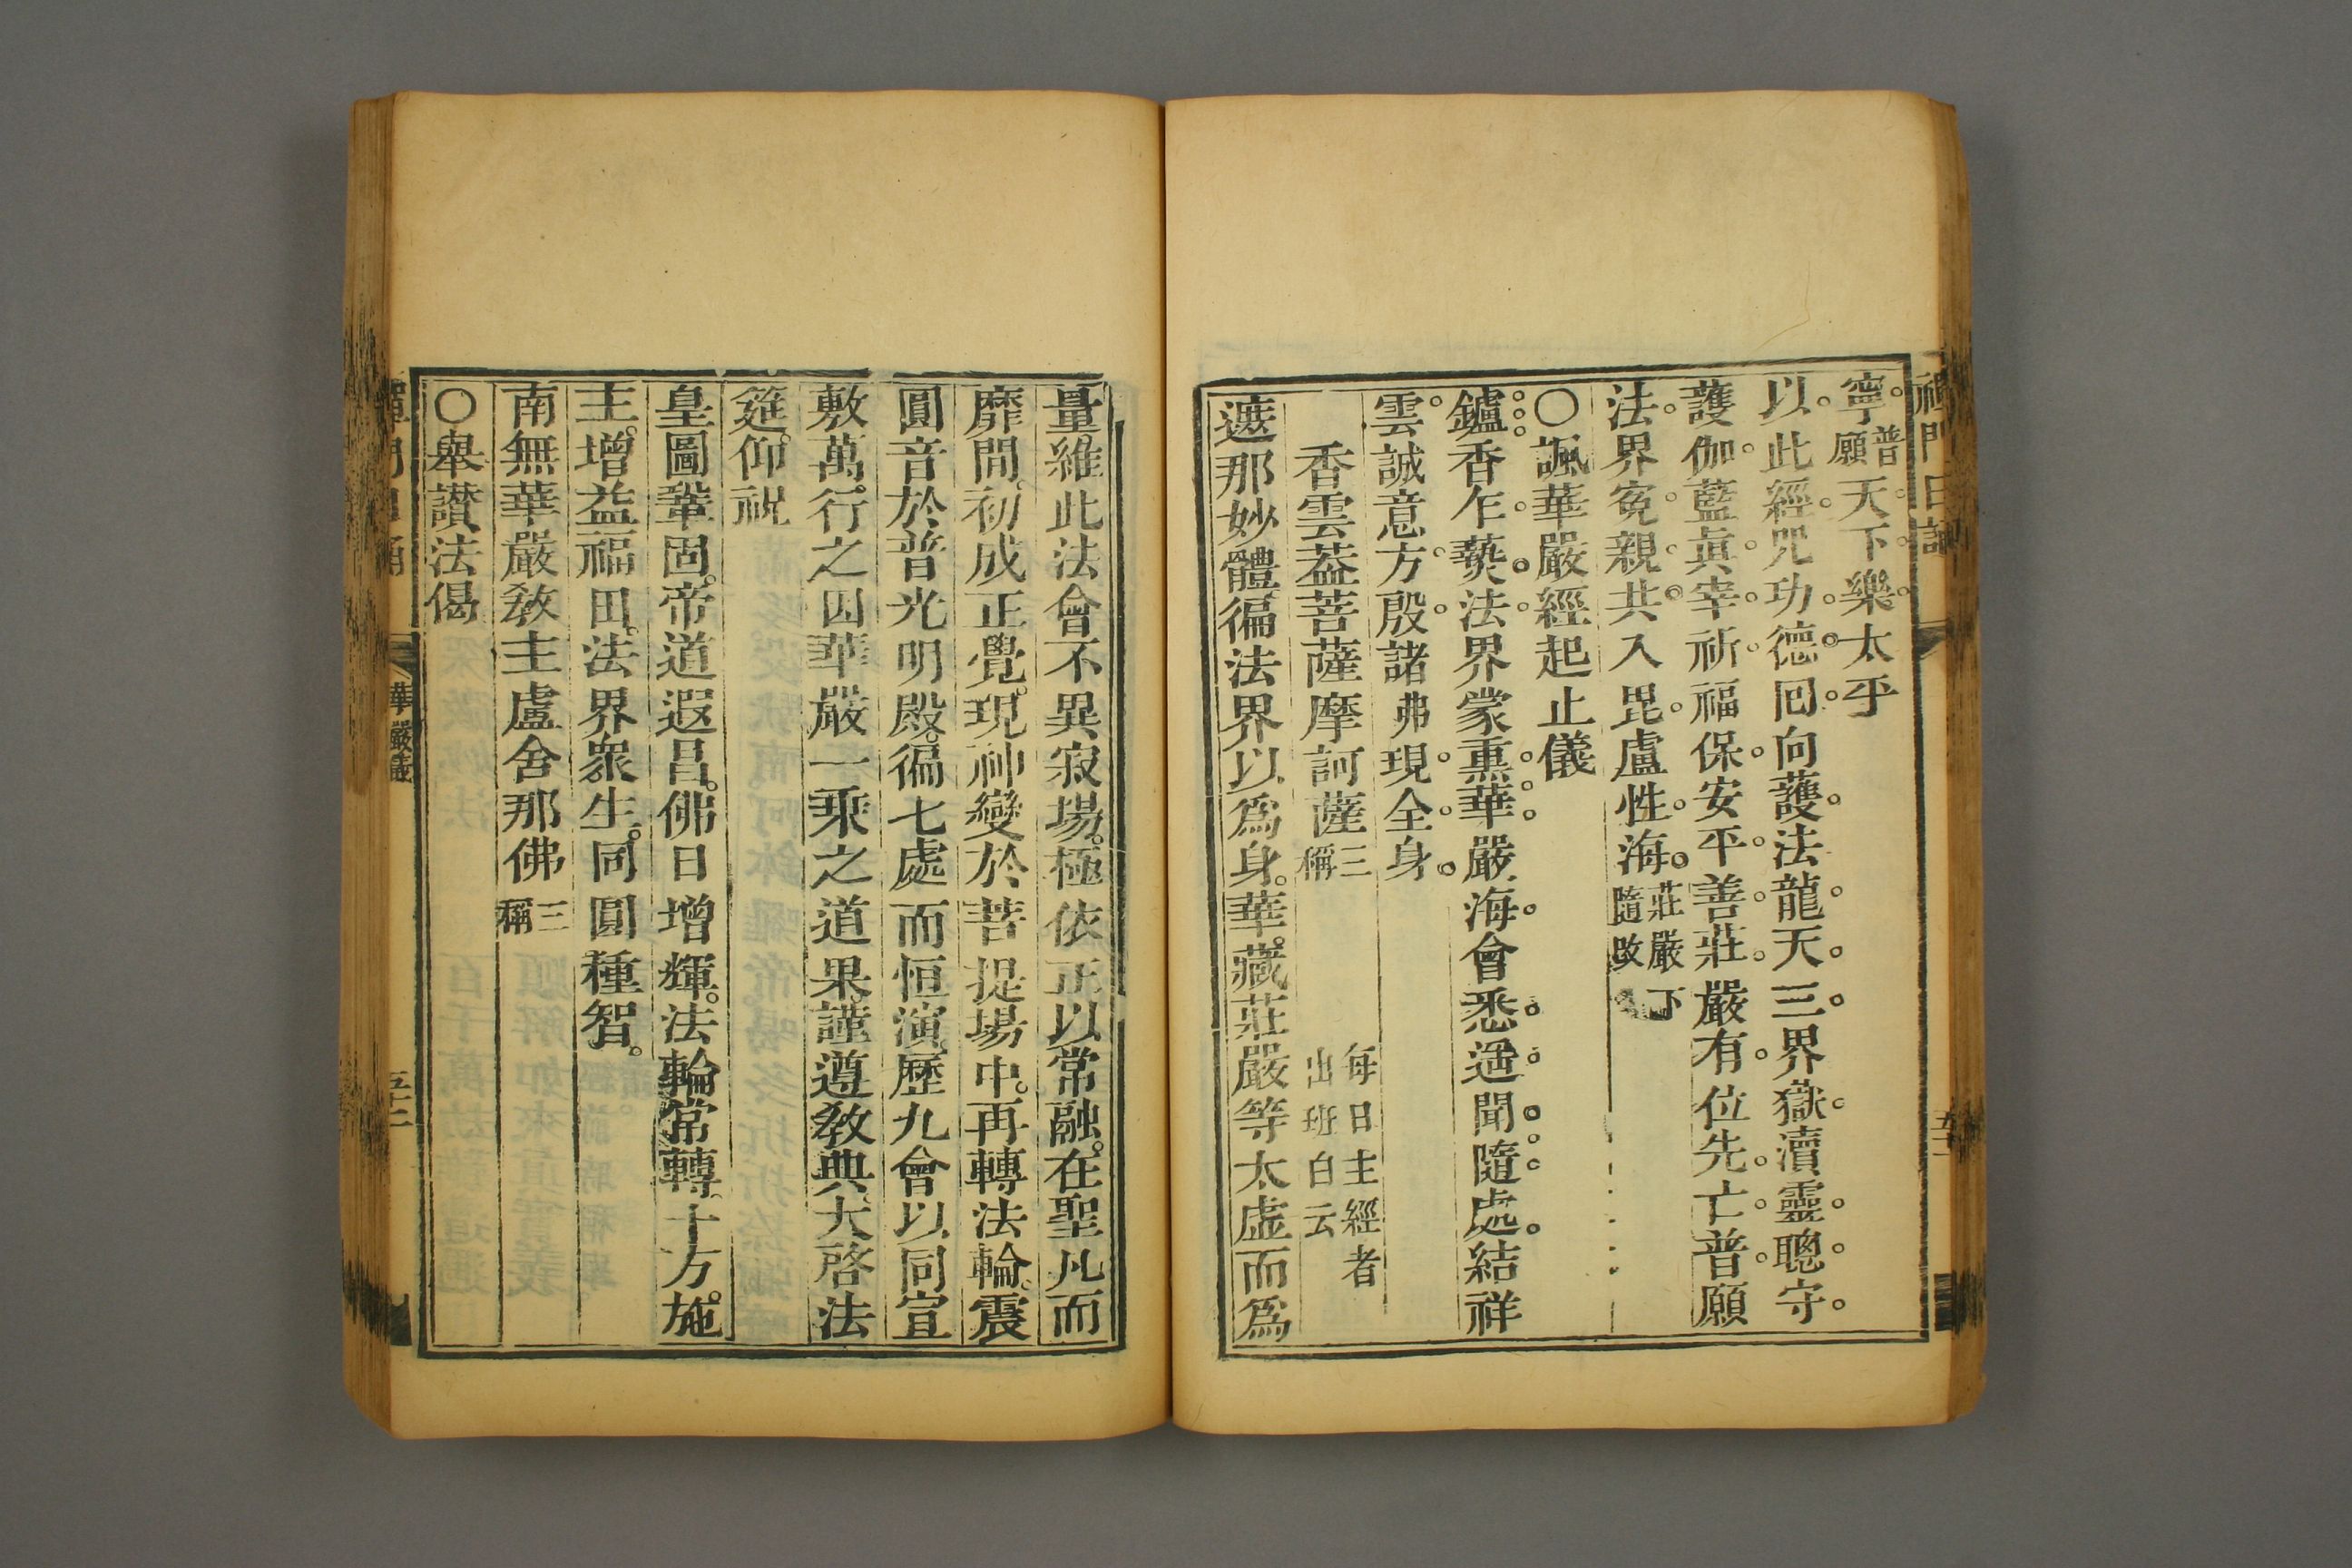 禪門日誦
寧。普願天。下。樂。太乎
以。此經。咒功。德。回。向護。法龍。天。三。界嶽。瀆靈。聰。守。
護伽。藍眞。宰。祈。福保。安平。善。莊。嚴有。位先。亡。普。願
法。界寃。親。共。入毘。盧性。海。莊嚴下隨改
〇諷華嚴經起止儀
鑪。香。乍。爇。法。界蒙熏。華。嚴海。會悉。遥。聞。隨。處。結祥
雲。誠意方。殷。諸弗現。全。身。
香雲葢菩薩摩訶薩三稱 每日主經者出班白云
遮那妙體徧法界以爲身。華。藏莊嚴等太虛而爲
量維此法會不異寂場。極依正以常融。在聖凡而
靡間。初成正覺。現神變於菩提場中。再轉法輪。震
圓音於普光明殿。徧七處而恒演。歷九會以同宣
敷萬行之因華。嚴一乘之道果。謹遵敎典。大啓法
筵。仰祝
皇圖鞏固。帝道遐昌。佛日增輝。法輪常轉。十方。施
主。增益福田。法界衆生。同圓種智。
南無華嚴敎主盧舍那佛三稱
〇舉讃法偈
華嚴儀
五十二